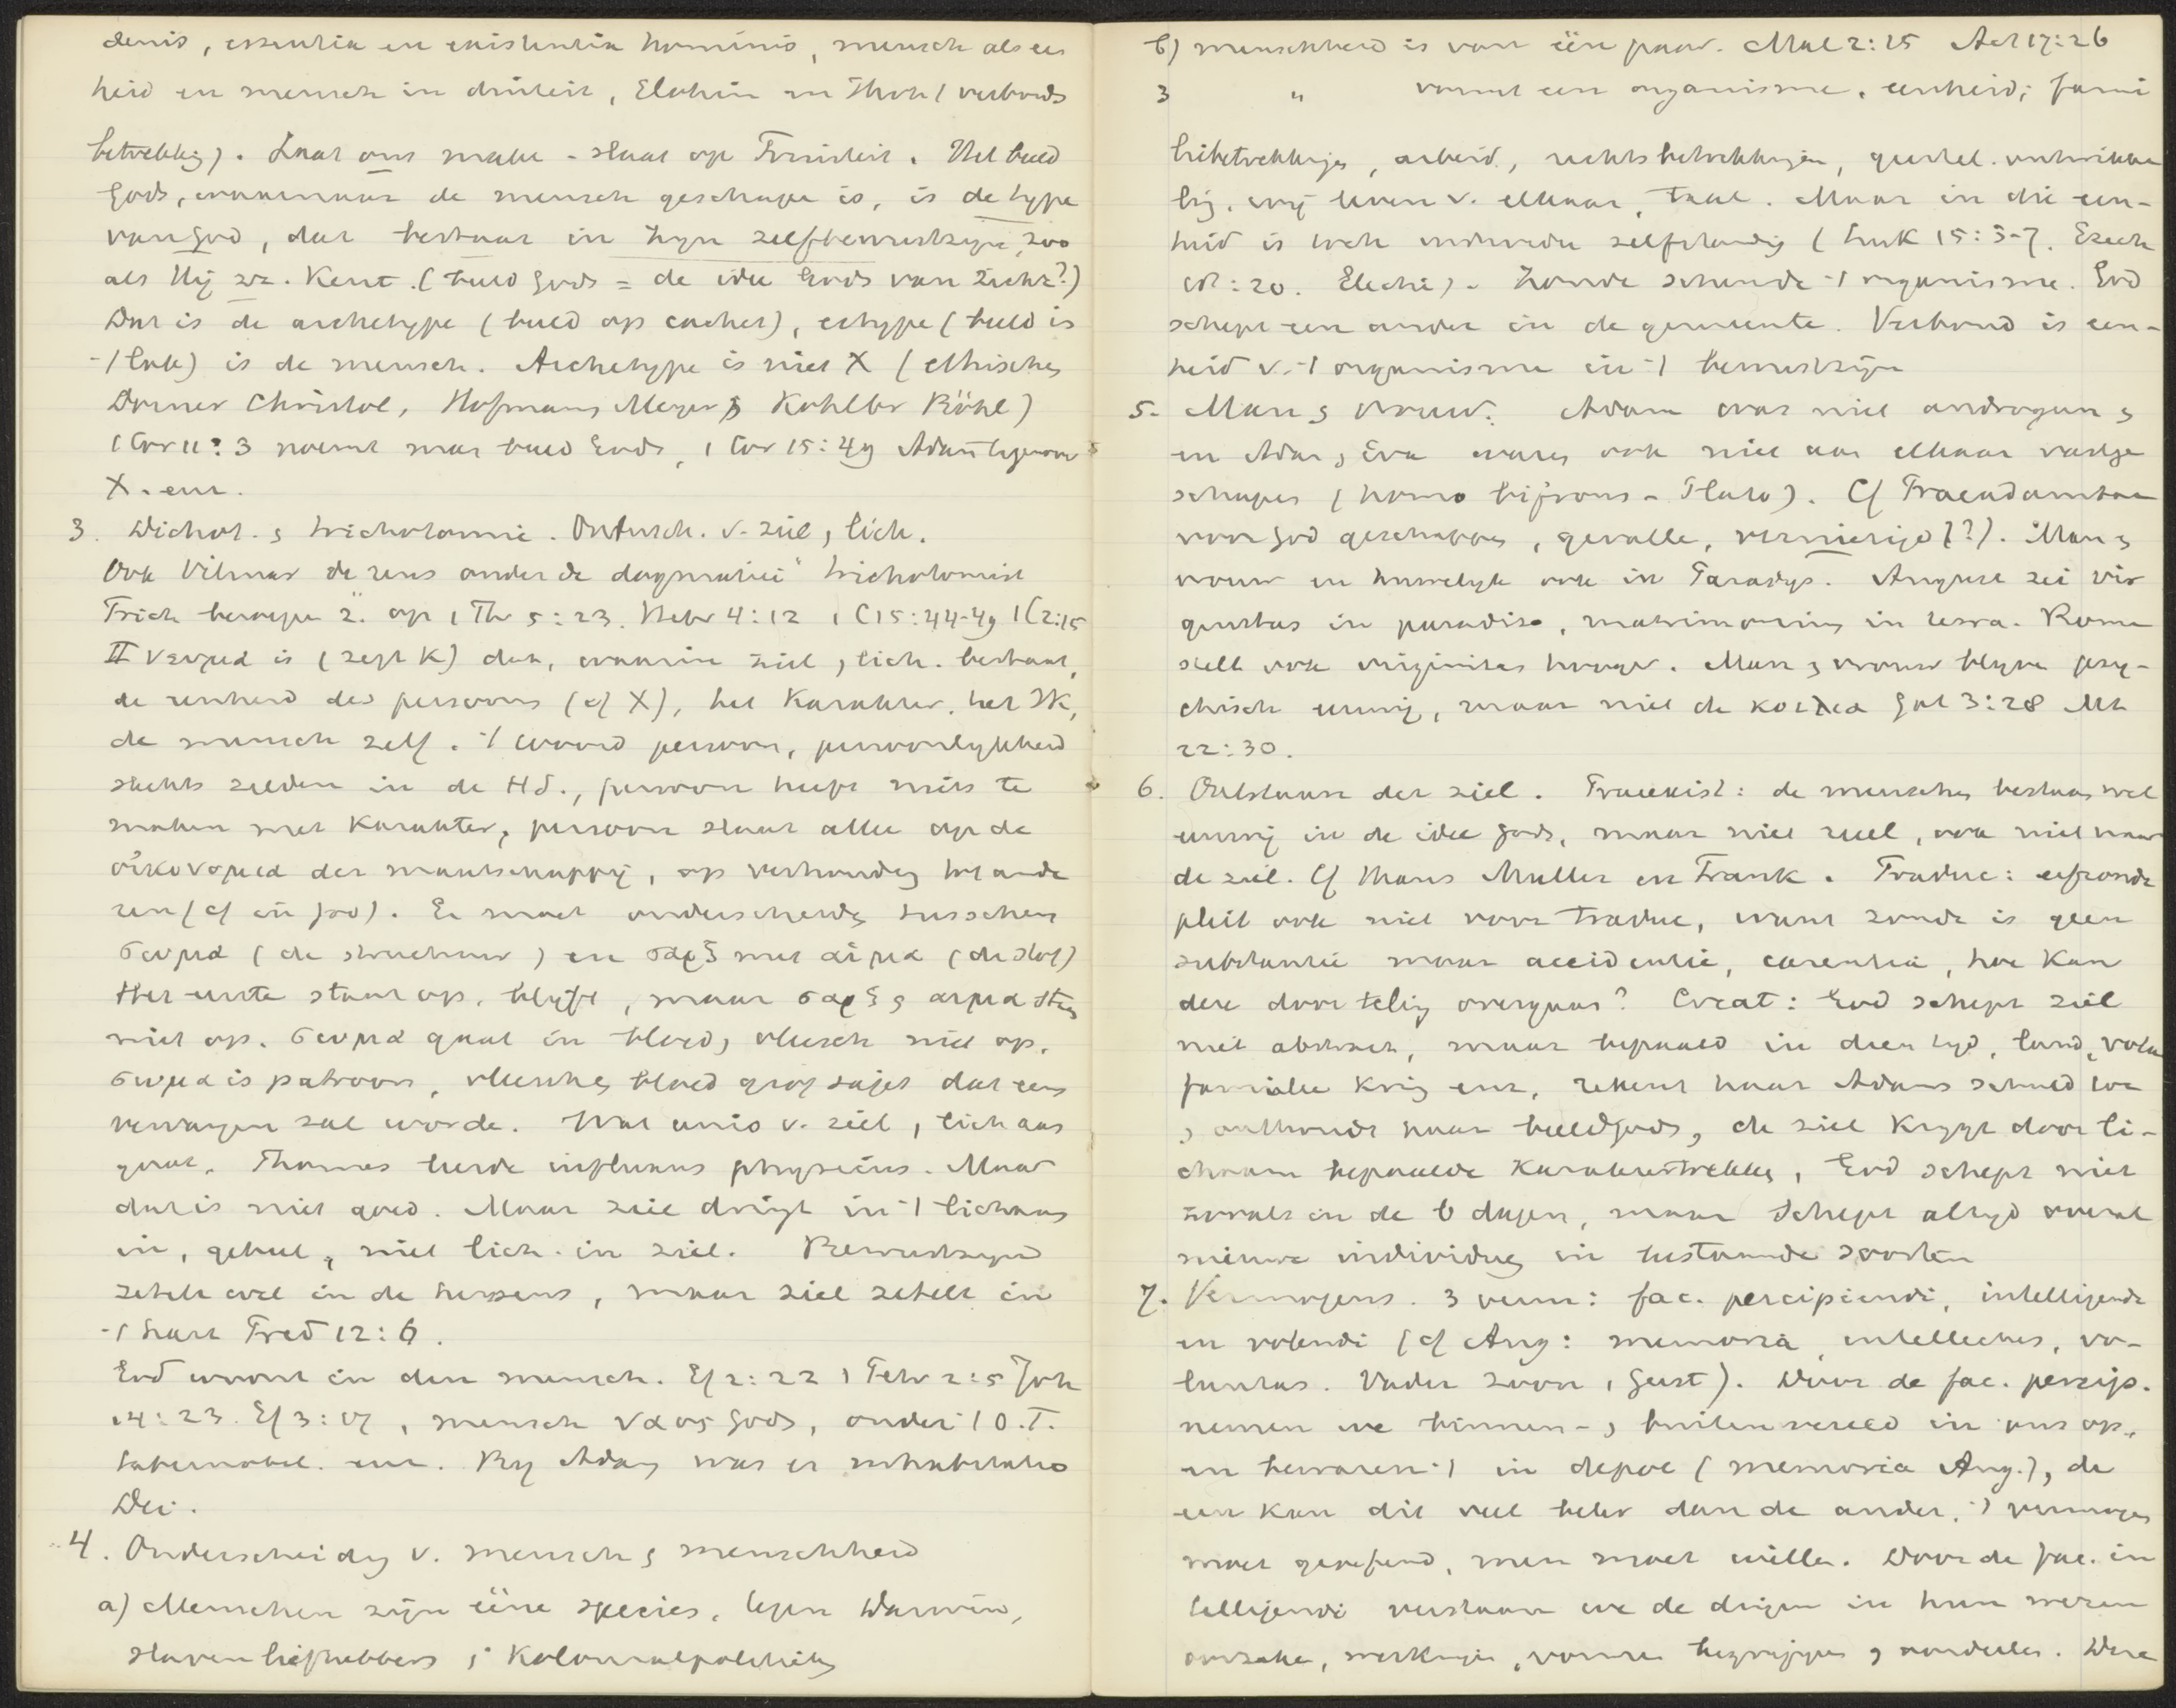 denis, essentia en existentia hominis, mensch als een
heid en mensch in drieheid, Elohim en Jhvh (verbonds
betrekking). Laat ons make - slaat op Triniteit. Het beeld
Gods, waarnaar de mensch geschape is, is de type
van God, dat bestaat in zijn zelfbewustzijn, zoo
als Hij zz. kent. (beeld Gods = de idee Gods van Zichz?)
Dat is de archetype (beeld op cachet), ectype (beeld in
-/ lak) is de mensch. Archetype is niet X (ethische,
Dorner Christol, Hofmann, Meyer, Kohlbr Böhl)
1 Cor 11:3 noemt man beeld Gods, 1 Cor 15:49 Adam tegenover
X. enz.
3. Dichot. & trichotomie. Ondersch. v. ziel, lich.
Ook Vilmar de reus onder de dogmatici trichotomist
Trich beroepen z. op 1 Th 5:23. Hebr 4:12 1 C 15:44-49 1 C 2:15
is (zegt K) dat, waarin ziel, lich. bestaat,
de eenheid des persoons (cf X), het karakter, het Ik,
de mensch zelf. -/ woord persoon, persoonlijkheid
slechts zelden in de HS., persoon heeft niets te
maken met karakter, persoon slaat alleen op de
der maatschappij, op verhouding tot ande
ren (cf in jure). Er moet onderscheide tusschen
σωμα (de structuur) en σαρξ met αιμα (de stof)
Het eerste staat op, blijft, maar σαρξ & αιμα staan
niet op. σωμα gaat in bloed, vleesch niet op.
σωμα is patroon, vleesch, bloed grof sajet dat eens
vervangen zal worde. Wat unio v. ziel, lich aan
gaat. Thomas leerde influxus physicus. Maar
dat is niet goed. Maar ziel dringt in -/ lichaam
in, geheel, niet lich. in ziel. Bewustzijn
zetelt wel in de hersens, maar ziel zetelt in
-/ hart Pred 12:6.
God woont in den mensch. Ef 2:22 1 Petr 2:5 Joh
14:23. Ef 3:17, mensch ναος Gods, onder -/ O.T.
tabernakel. enz. Bij Adam was er inhabitatio
Dei.
4. Onderscheiding v. mensch & menschheid
a) Menschen zijn ééne species, tegen Darwin,
slavenliefhebbers & koloniaalpolitiek
b) menschheid is van één paar. Mal 2:15 Act 17:26
3 " vormt een organisme, eenheid; fami
liebetrekkinge, arbeid, rechtsbetrekkingen, geestel. ontwikke
ling, wij leven v. elkaar, taal. Maar in die een-
heid is toch individu zelfstandig (Luk 15:3-7. Ezech
18:20. Electie). Zonde schende -/ organisme. God
schept een ander in de gemeente. Verbond is een-
heid v. -/ organisme in -/ bewustzijn
5. Man & vrouw. Adam was niet androgyn &
en Adam & Eva waren ook niet aan elkaar vastge
schapen (homo bifrons - Plato). Cf Praeadamitae
van God geschapen, gevalle, vernietigd (?). Man &
vrouw en huwelijk ook in Paradijs. August zei vir
in paradiso, matrimonium in terra. Rome
stelt ook virginitas hooger. Man & vrouw blijve psy-
chisch eeuwig, maar niet de κοιλια Gal 3:28 Mt
22:30.
6. Ontstaan der ziel. Praeexist: de menschen bestaan wel
eeuwig in de idee Gods, maar niet reëel, ook niet naar
de ziel. Cf Muller en Frank. Traduc: erfzonde
pleit ook niet voor traduc, want zonde is geen
substantie maar accidentie, carentia, hoe kan
deze door teling overgaan? Creat: God schept ziel
niet abstract, maar bepaald in dien tijd, land, volk
familie kring enz, rekent haar Adams schuld toe
& onthoudt haar beeld Gods, de ziel krijgt door li-
chaam bepaalde karaktertrekken, God schept niet
zooals in de 6 dagen, maar schept altijd overal
nieuwe individuen in bestaande soorten
7. Vermogens. 3 verm: fac. percipiendi, intelligendi
en volendi (cf Aug: memoria, intellectus, vo-
luntas. Vader Zoon, Geest). Door de fac. percip.
nemen we binnen- & buitenwereld in ons op,
en bewaren -/ in depot (memoria Aug.), de
een kan dit veel beter dan de ander, -/ vermogen
moet geoefend, men moet wille. Door de fac. in
telligendi verstaan we de dingen in hun wezen
oorzake, werkinge, vormen begrippen & oordeelen. Deze